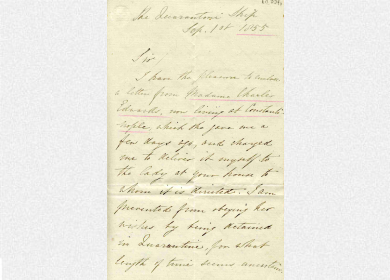 The Quarantine Ship
Sep. 1st 1855
Sir,
I have the pleasure to enclose
a letter from Madame Charles
Edwards, now living at Constanti
nople, which she gave me a
few days ago, and charged
me to deliver it myself to
the lady at your house to
whom it is directed. I am
prevented from obeying her
wishes by being detained
in Quarantine, for what
length of time seems uncertain